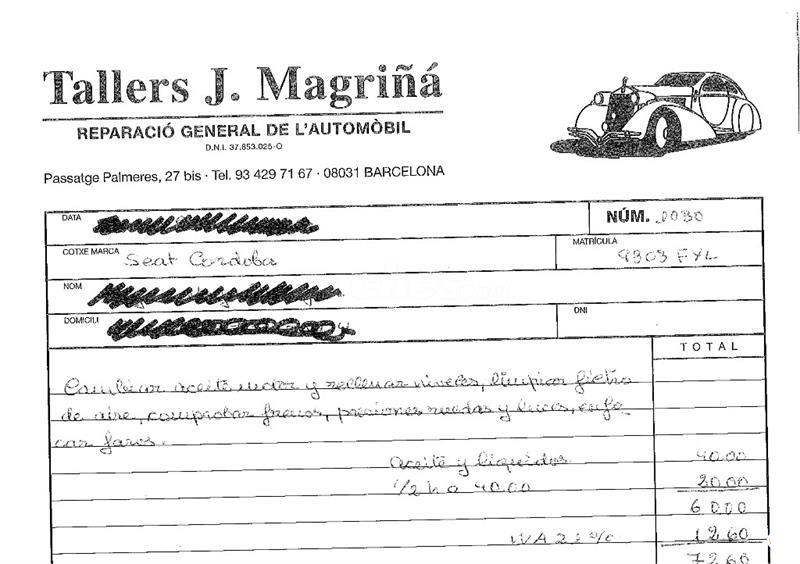 Tallers J. Magriñá
REPARACIÓ GENERAL DE L'AUTOMÒBIL
D.N.I. 37.853.025-Q
Passatge Palmeres, 27 bis · Tel. 93 429 71 67 · 08031 BARCELONA
DATA
NÚM. 2030
COTXE MARCA Seat Cordoba
MATRÍCULA 9303 FYL
NOM
DOMICILI
DNI
TOTAL
Cambiar aceite motor y rellenar niveles, limpiar filtro
de aire, comprobar frenos, presiones ruedas y luces, enfo
car faros.
aceite y liquidos 40.00
1/2 h a 40.00 20.00
60.00
IVA 21% 12.60
72.60